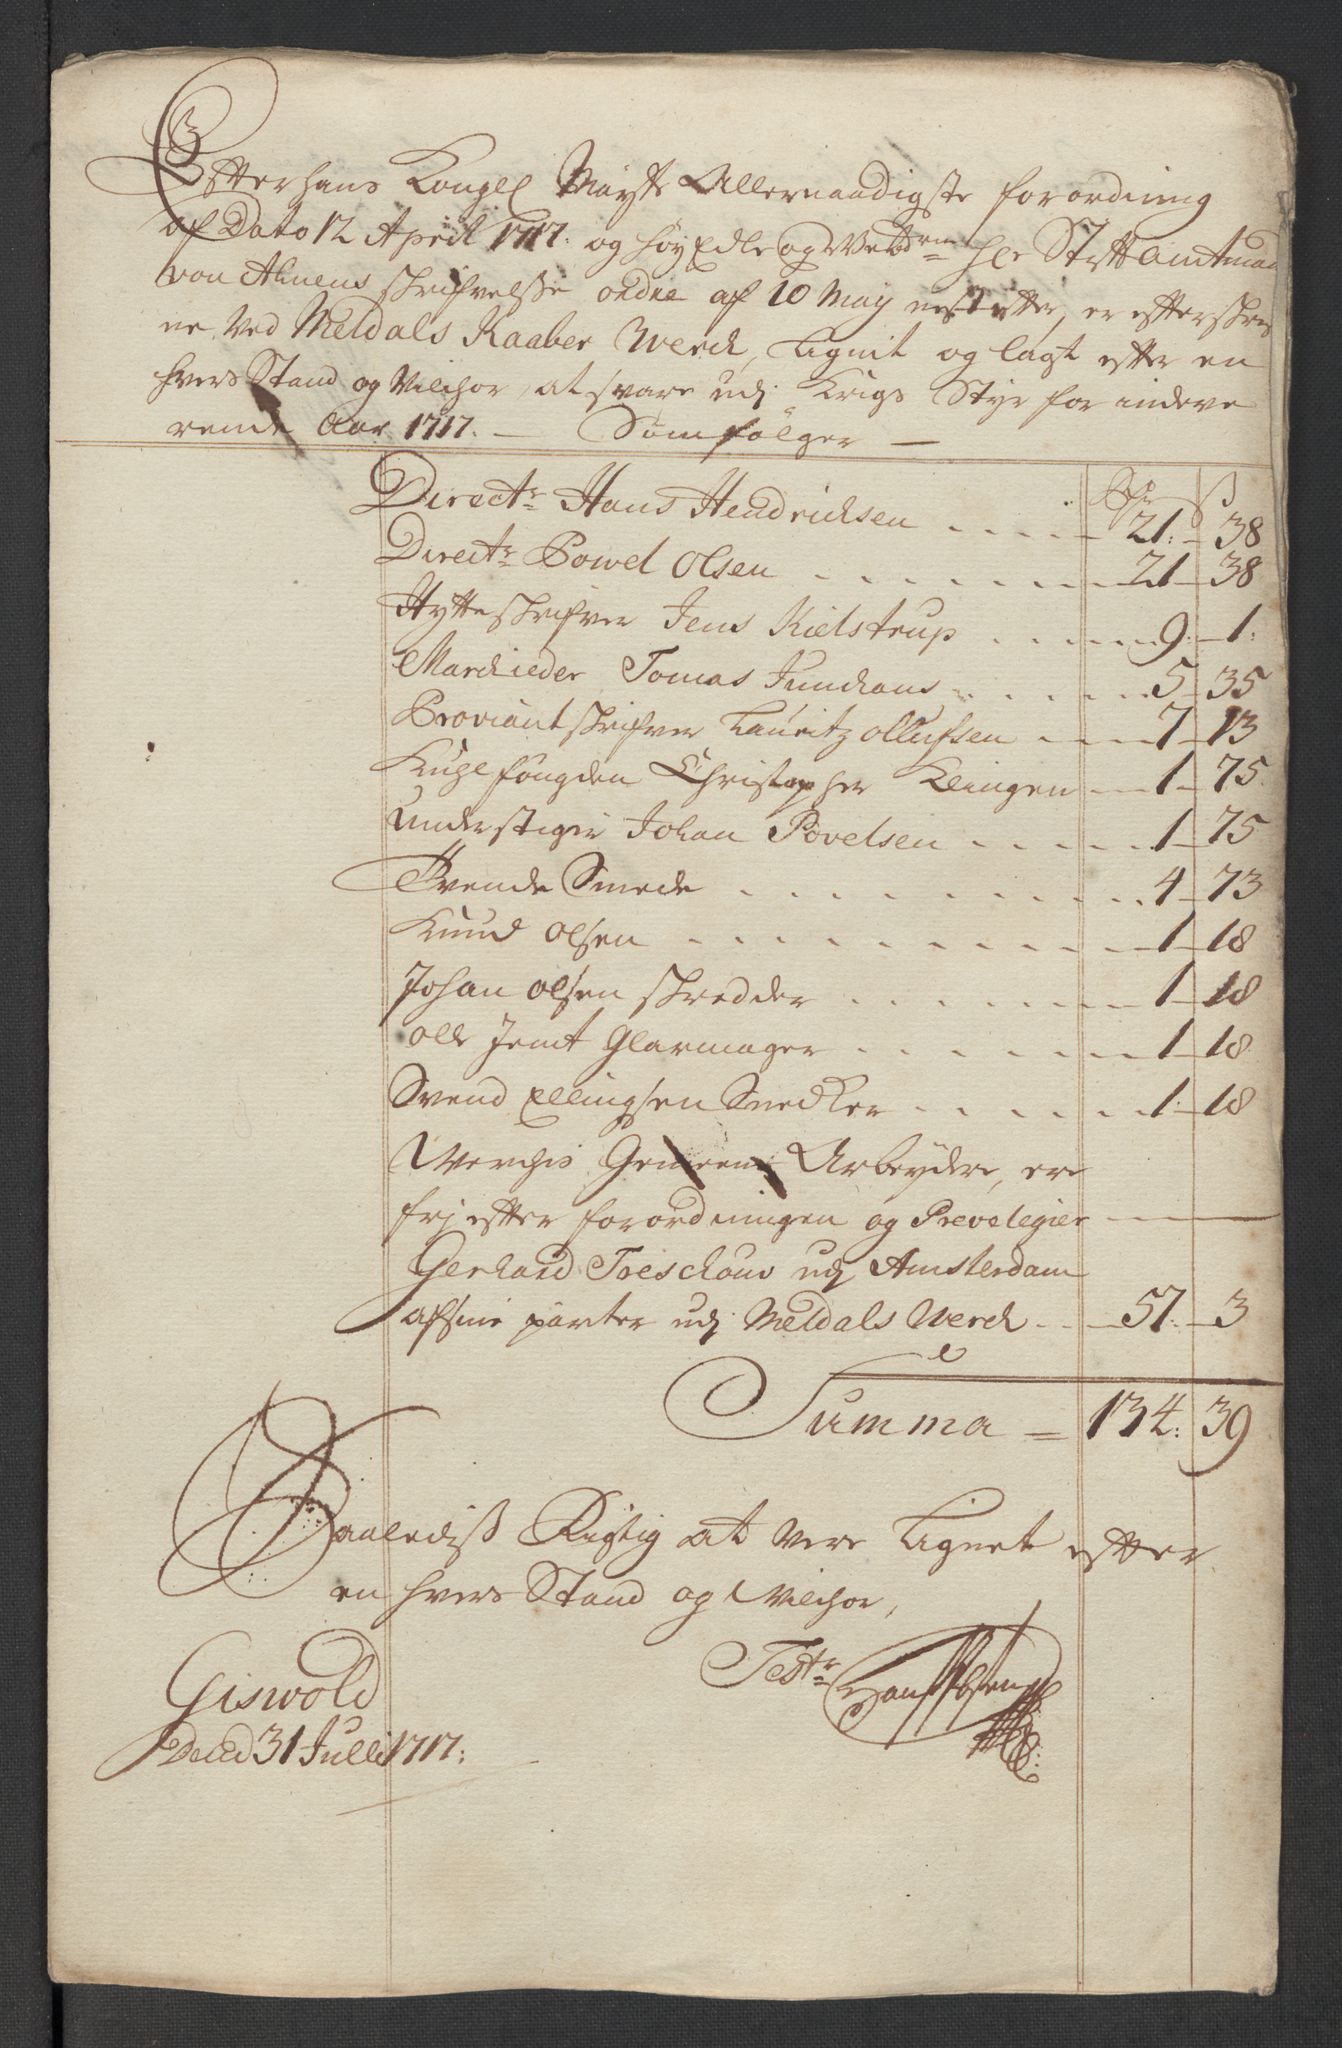 Efter hans Kongel Mayts Allernaadigste forordning
af Dato 12 April 1717: og høy Edle og Velb hr Stiftamtmand
von Ahnens skrifvelsse ordre af 10 May nest efter, er effterskref
ne Ved Meldals Kaaber Werch, Lignit og lagt efter en
hvers Stand og Vilchor, at svare udj Krigs Styr for indeve
rende Aar 1717. — Som følger —
Rdr ß
Directr Hans Hendrichsen 21: 38
Directr Powel Olsen 21 38
Hytteskrifver Jens Kielstrup 9: 1:
Marchieder Tomas Jundhans 5 35
Proviantskrifver Lauritz ollufsen 7 13
Kuhlfougden Christopher Klingen 1 75
Understiger Johan Povelsen 1 75
Tvende Smede 4 73
Knud olsen 1 18
Johan olsen skredder 1 18
olle Jemt Glarmager 1 18
Svend Ellingsen Snedker 1 18
Werchis Gemeene Arbeydere, ere
frj efter forordningen og Prevelegier
Gerhard Treschouv udj Amsterdam
af sine parter udj Meldals Werch 57 3
Summa = 134: 39
Saaledis Rigtig at vere Lignet efter
en hvers Stand og Vilchor,
Testr
Giswold
Dend 31 Julli 1717: